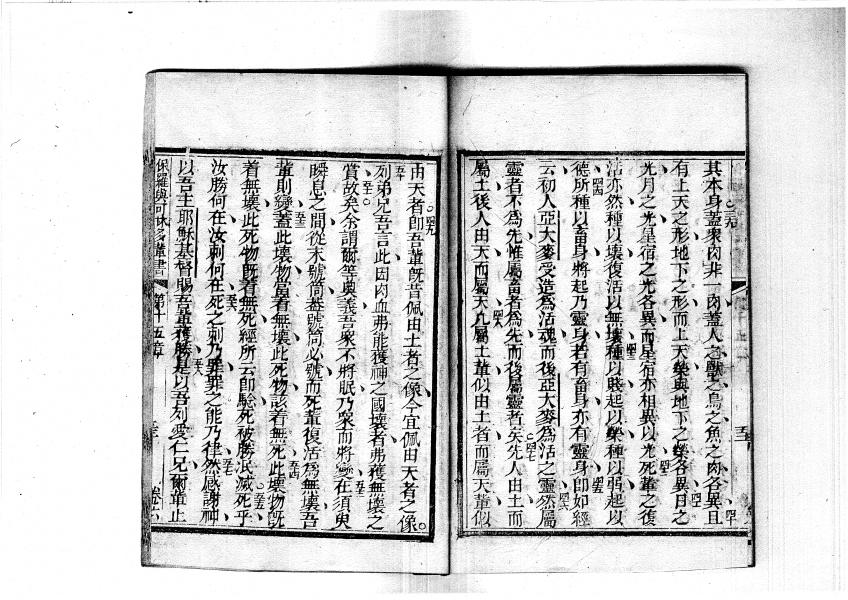 其本身蓋衆肉非一肉蓋人之獸之鳥之魚之肉各異且
有上天之形地下之形而上天榮與地下之榮各異月之
光月之光星宿之光各異而星宿亦相異以光死軰之復
活亦然種以壞復活以無壞種以賤起以榮種以弱起以
德所種以畜身將起乃靈身若有畜身亦有靈身即如經
云初人亞大麥受造爲活魂而後亞大麥爲活之靈然屬
靈者不爲先惟屬畜者爲先而後屬靈者矣先人由土而
屬土後人由天而屬天凢屬土軰似由土者而屬天軰似
由天者即吾軰旣昔佩由土者之像今宜佩由天者之像
列弟兄吾言此因肉血弗能獲神之國壞者弗獲無壞之
賞故矣余謂爾等奥義吾衆不將眠乃衆而將變在須臾
瞬息之間從末號筒葢號筒必號而死軰復活爲無壞吾
軰則變蓋此壞物當着無壞此死物該着無死此壞物旣
着無壞此死物旣着無死經所云即驗死被勝泯滅死乎
汝勝何在汝刺何在死之刺乃罪罪之能乃律然感謝神
以吾主耶穌基督賜吾軰獲勝是以吾列愛仁兄爾軰止
保羅與可林多軰書 第十五章